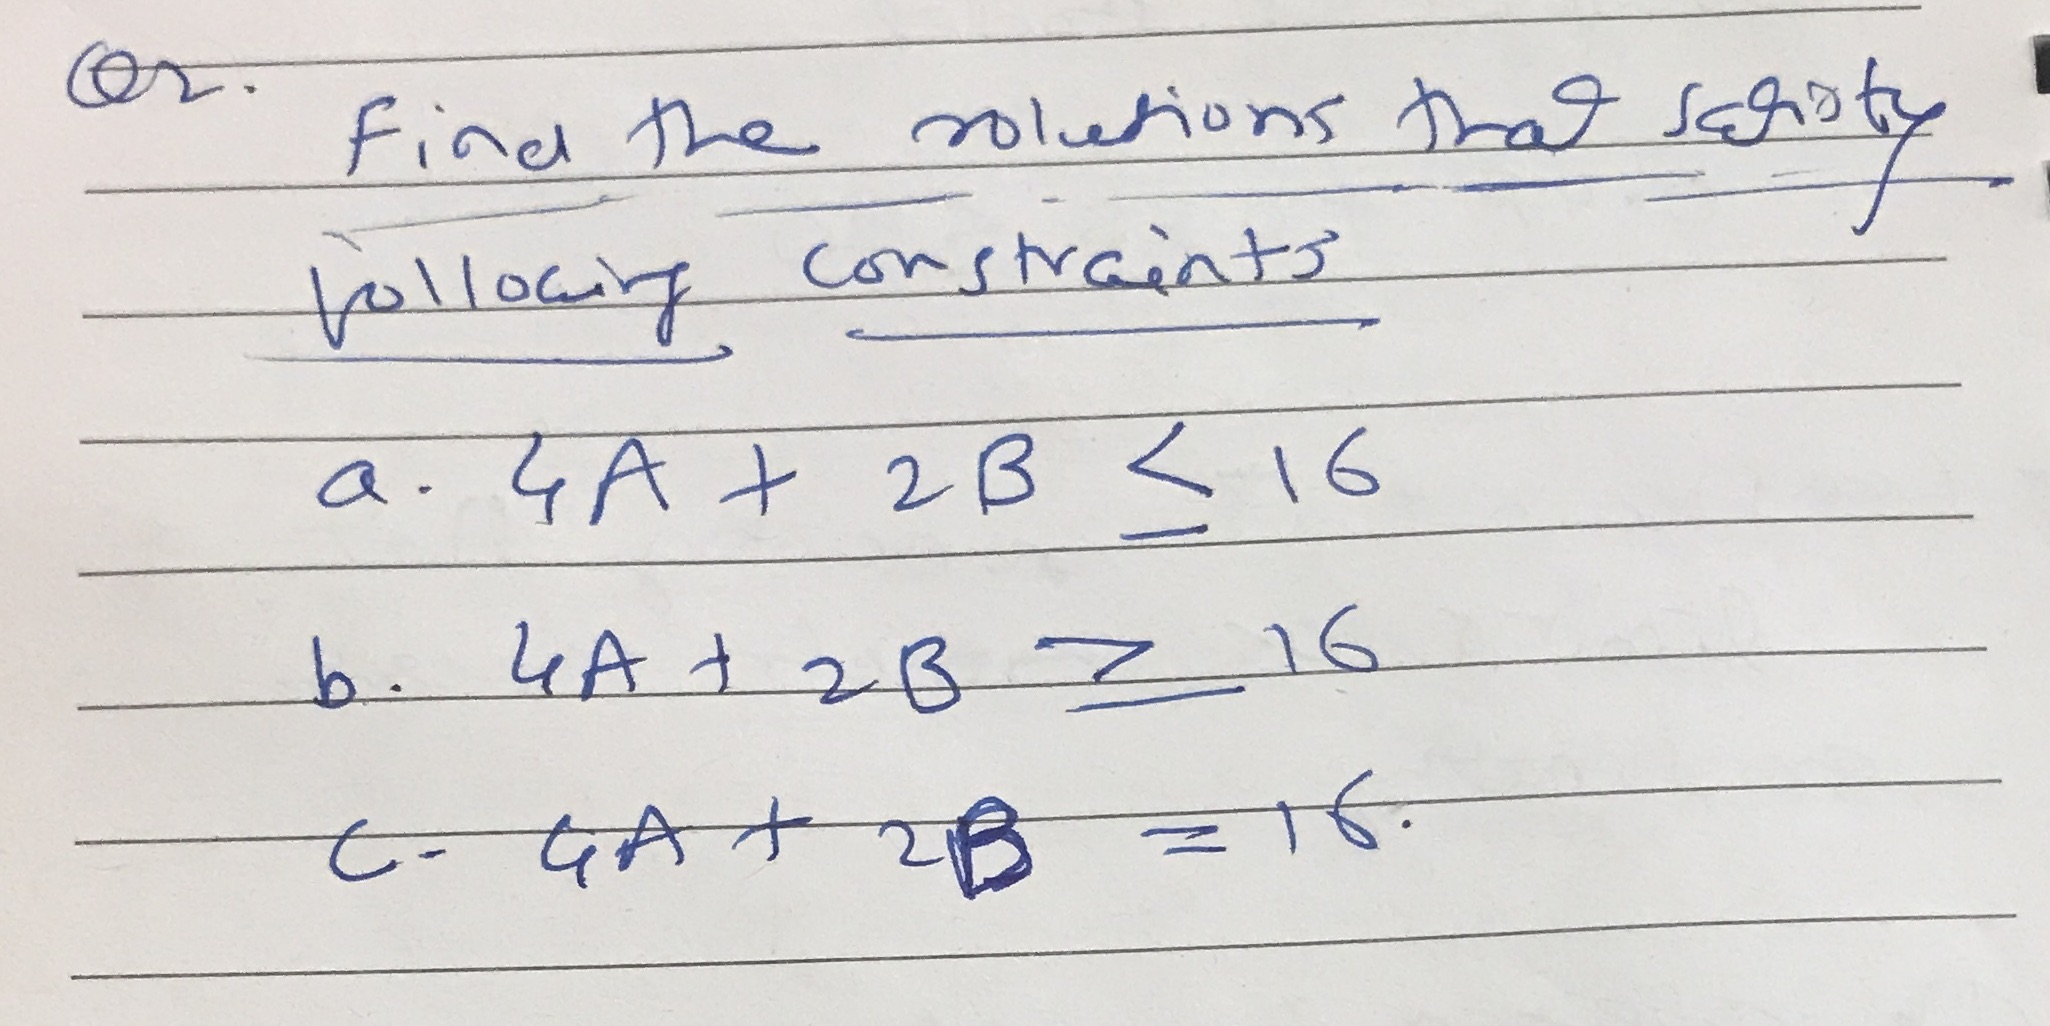 Q2.
Find the solutions that satisfy
following constraints
a. 4A + 2B ≤ 16
b. 4A + 2B ≥ 16
c. 4A + 2B = 16.